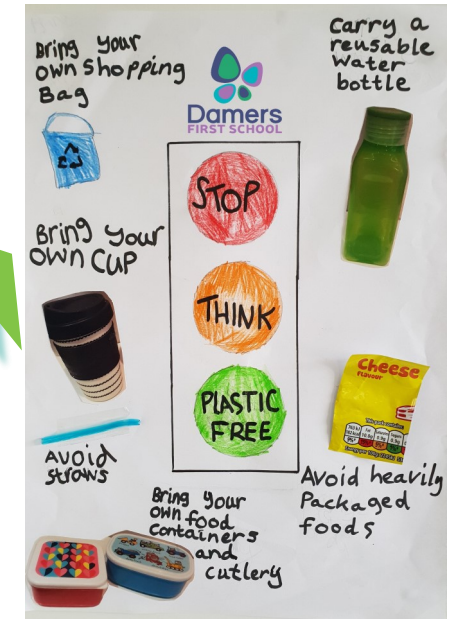 Bring your
own shopping
Bag
Damers
FIRST SCHOOL
Carry a
reusable
water
bottle
STOP
THINK
PLASTIC
FREE
Bring your
own CUP
Avoid
straws
Cheese
Flavour
This pack contains:
Avoid heavily
Packaged
foods
Bring your
own food
containers
and
cutlery